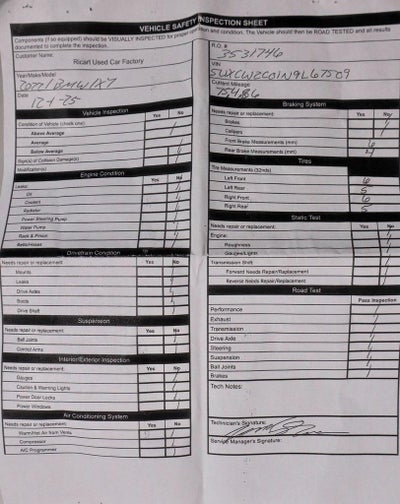 VEHICLE SAFETY INSPECTION SHEET
Components (if so equipped) should be VISUALLY INSPECTED for proper operation and condition. The Vehicle should then be ROAD TESTED and all results
documented to complete the inspection.
Customer Name:
Ricart Used Car Factory
Year/Make/Model:
2022/BMW/X7
Date
12-1-25
R.O. #
3531746
VIN
5UXCW2C01N9L67509
Current Mileage
Vehicle Inspection
Condition of Vehicle (check one) Yes No
Above Average
Average
Below Average
Sign(s) of Collision Damage(s)
Modification(s)
Engine Condition
Leaks: Yes No
Oil
Coolant
Radiator
Power Steering Pump
Water Pump
Rack & Pinion
Belts/Hoses
Drivetrain Condition
Needs repair or replacement: Yes No
Mounts
Leaks
Drive Axles
Boots
Drive Shaft
Suspension
Needs repair or replacement: Yes No
Ball Joints
Control Arms
Interior/Exterior Inspection
Needs repair or replacement: Yes No
Gauges
Caution & Warning Lights
Power Door Locks
Power Windows
Air Conditioning System
Needs repair or replacement: Yes No
Warm/Hot Air from Vents
Compressor
A/C Programmer
Braking System
Needs repair or replacement: Yes No
Brakes
Calipers
Front Brake Measurements (mm) 6
Rear Brake Measurements (mm) 4
Tires
Tire Measurements (32nds)
Left Front 6
Left Rear 5
Right Front 6
Right Rear 5
Static Test
Needs repair or replacement: Yes No
Engine:
Roughness
Gauges/Lights
Transmission Shift
Forward Needs Repair/Replacement
Reverse Needs Repair/Replacement
Road Test
Pass Inspection
Performance
Exhaust
Transmission
Drive Axle
Steering
Suspension
Ball Joints
Brakes
Tech Notes:
Technician's Signature:
Service Manager's Signature: